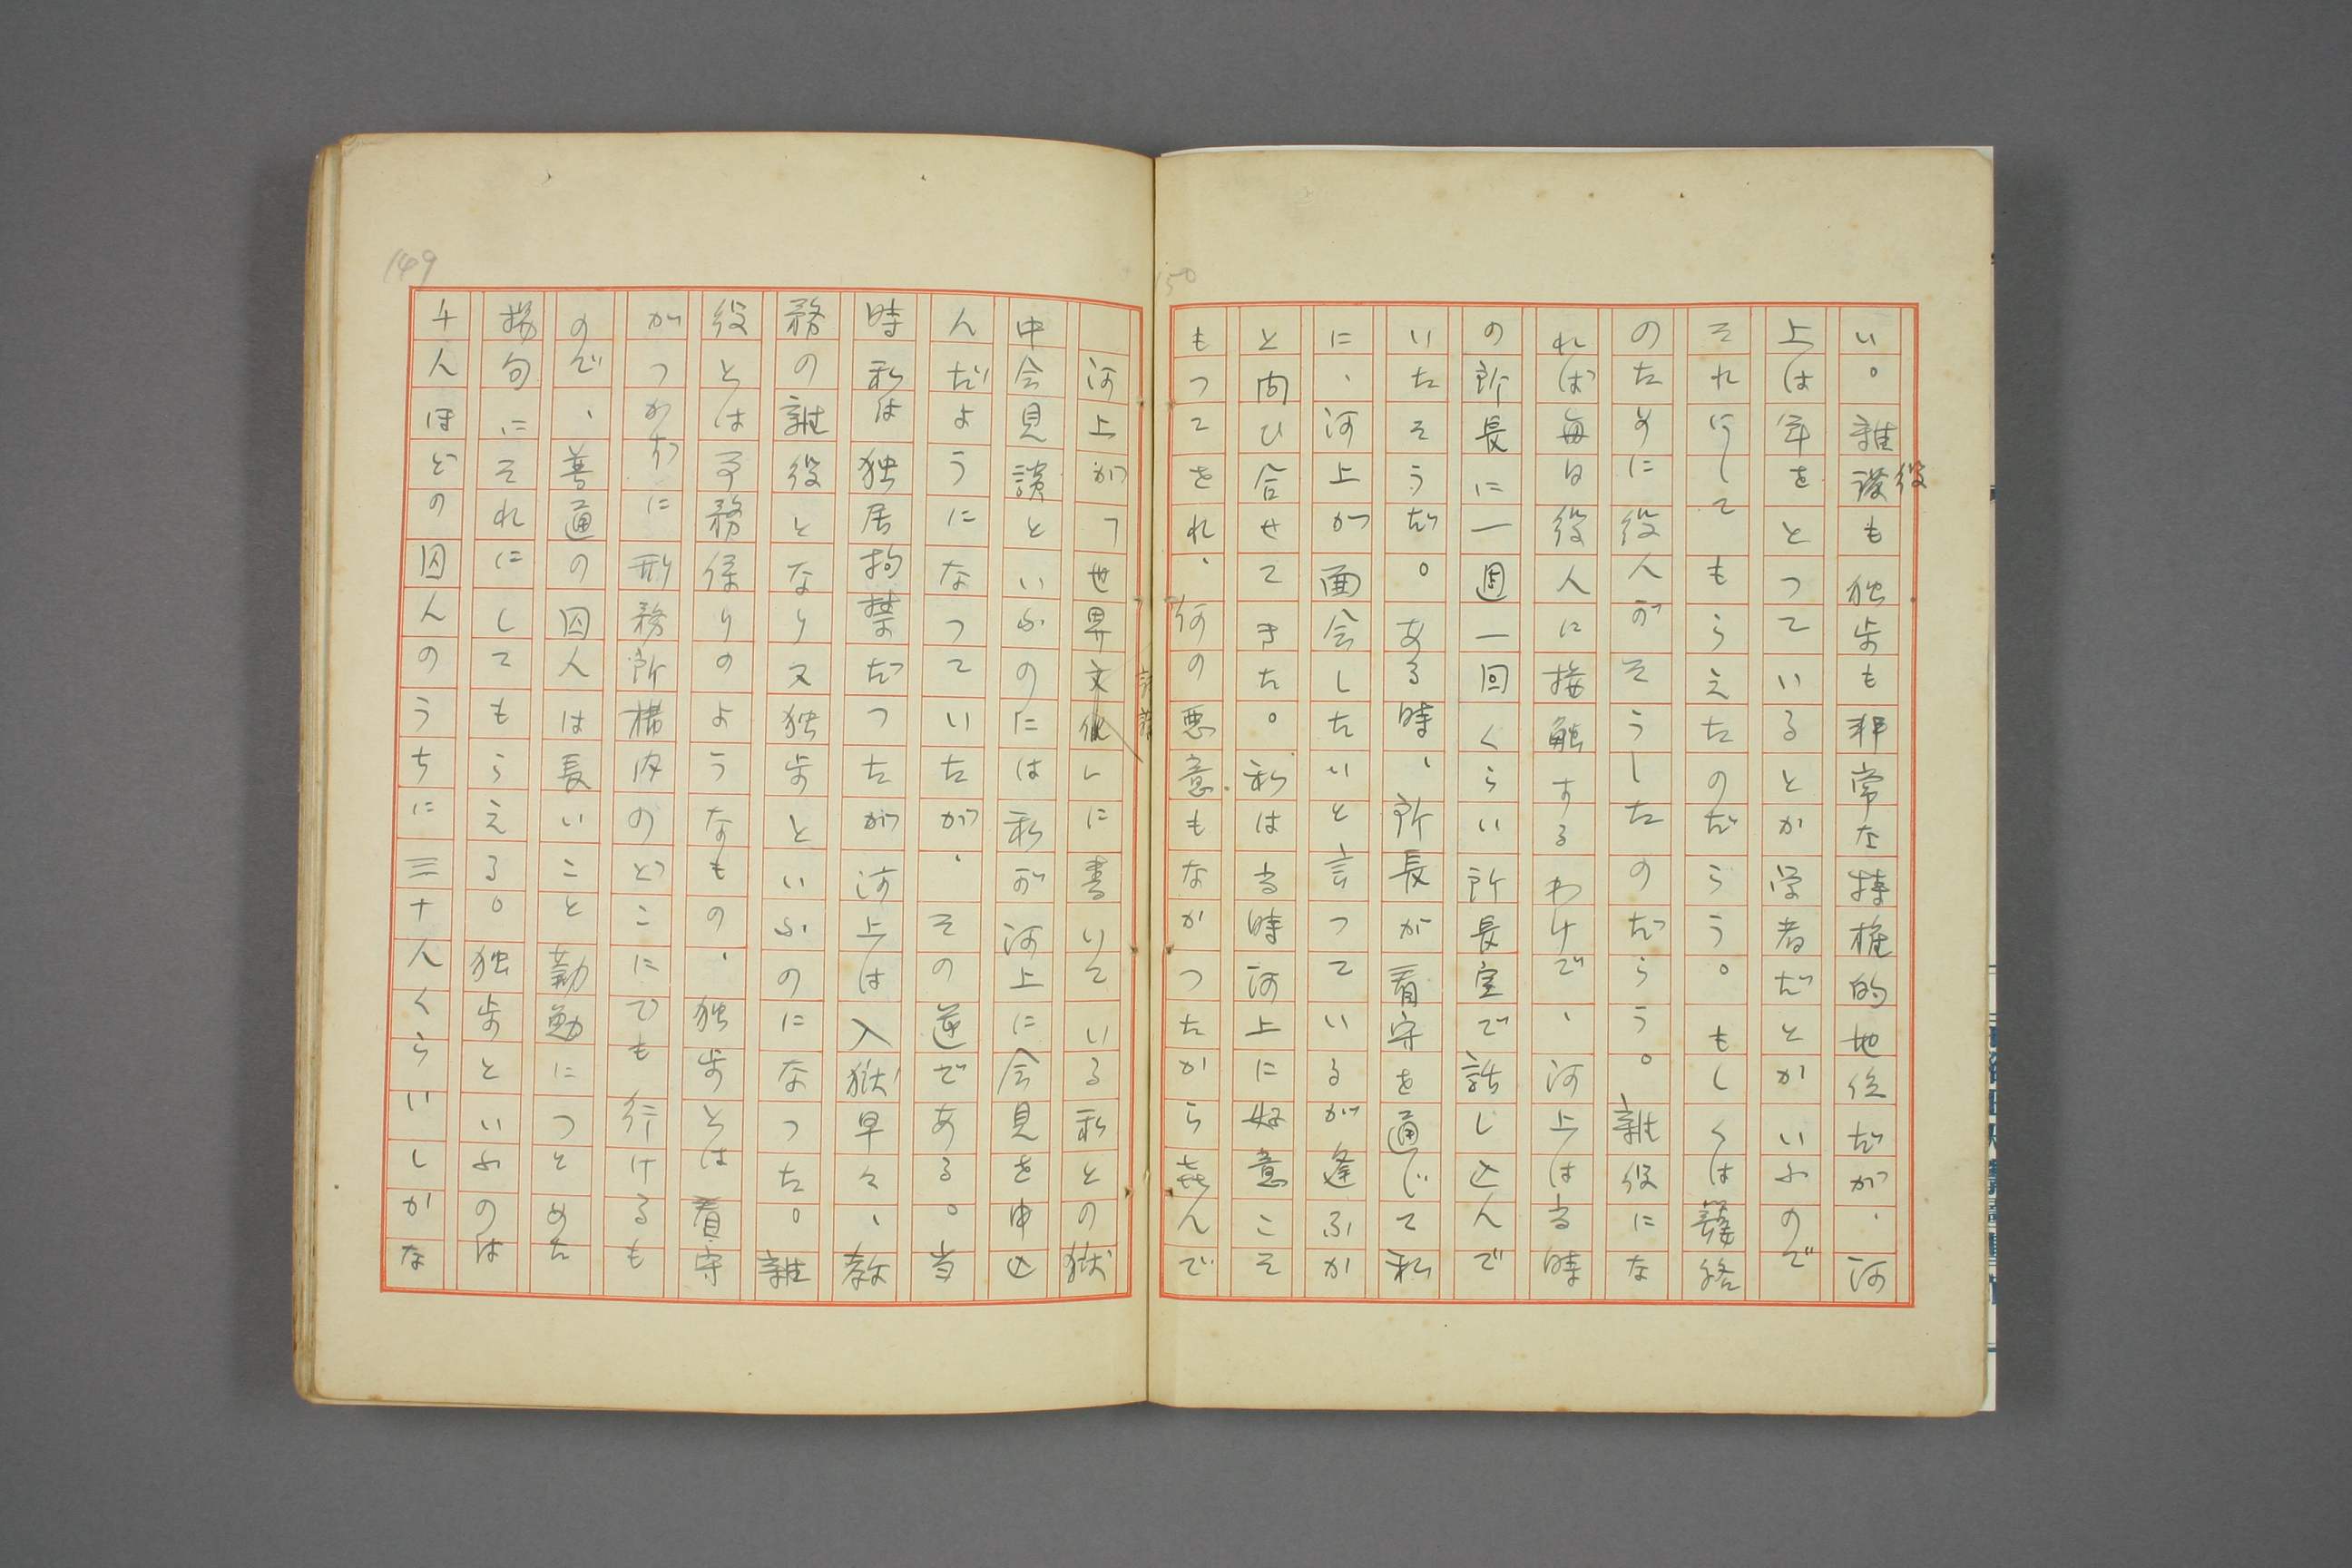 149
河上が「世界評論」に書いている私との獄
中会見談といふのには私が河上に会見を申込
んだようになつていたが、その逆である。当
時私は独居拘禁だつたが河上は入獄早々、教
務の雑役となり又独歩といふのになつた。雑
役とは事務係りのようなもの、独歩とは看守
がつかずに刑務所構内のどこにでも行けるも
ので、普通の囚人は長いこと勤勉につとめた
揚句にそれにしてもらえる。独歩といふのは
千人ほどの囚人のうちに三十人くらいしかな
150
い。雑役も独歩も非常な特権的地位だが、河
上は年をとつているとか学者だとかいふので
それにしてもらえたのだらう。もしくは籠絡
のために役人がそうしたのだらう。雑役にな
れば毎日役人に接触するわけで、河上は当時
の所長に一週一回くらい所長室で話し込んで
いたそうだ。ある時、所長が看守を通じて私
に、河上が面会したいと言つているが逢ふか
と問ひ合せてきた。私は当時河上に好意こそ
もつてをれ、何の悪意もなかつたから喜んで